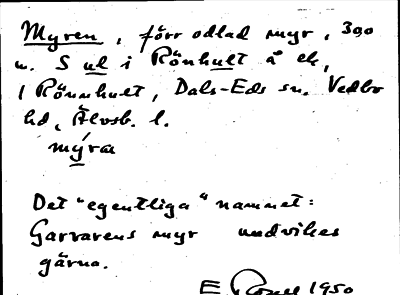 Myren, förr odlad myr, 300
m. S ul i Rönhult å ek,
1 Rönnhult, Dals-Eds sn. Vedbo
hd, Älvsb. l.
myra
Det "egentliga" namnet:
Garvarens myr undvikes
gärna.
E 1950